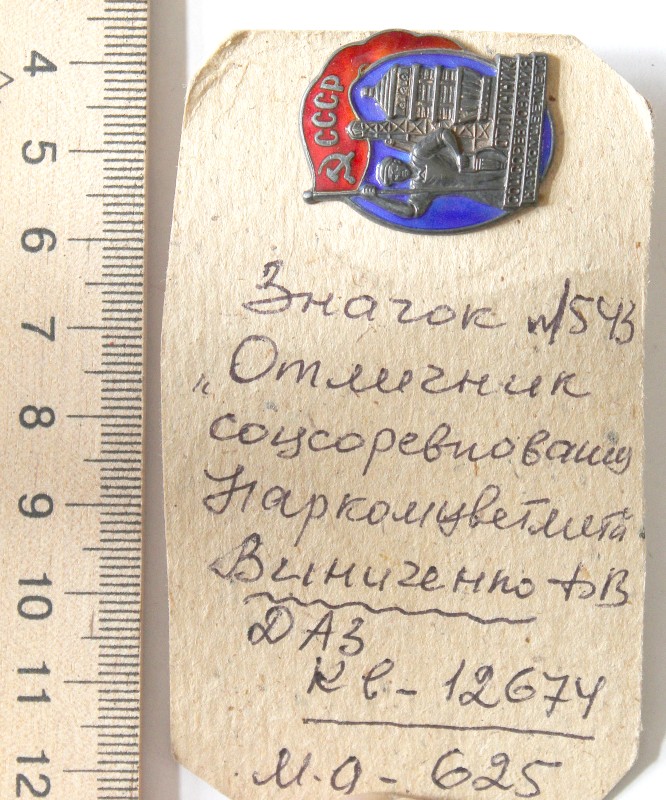 4
5
6
7
8
9
10
11
12
СССР
ОТЛИЧНИК
СОЦСОРЕВНОВАНИЯ
НАРКОМЦВЕТМЕТА
Значок №543
„Отличник
соцсоревнования
Наркомцветмета
Виниченко ФВ
ДАЗ
КВ - 12674
М.О - 625